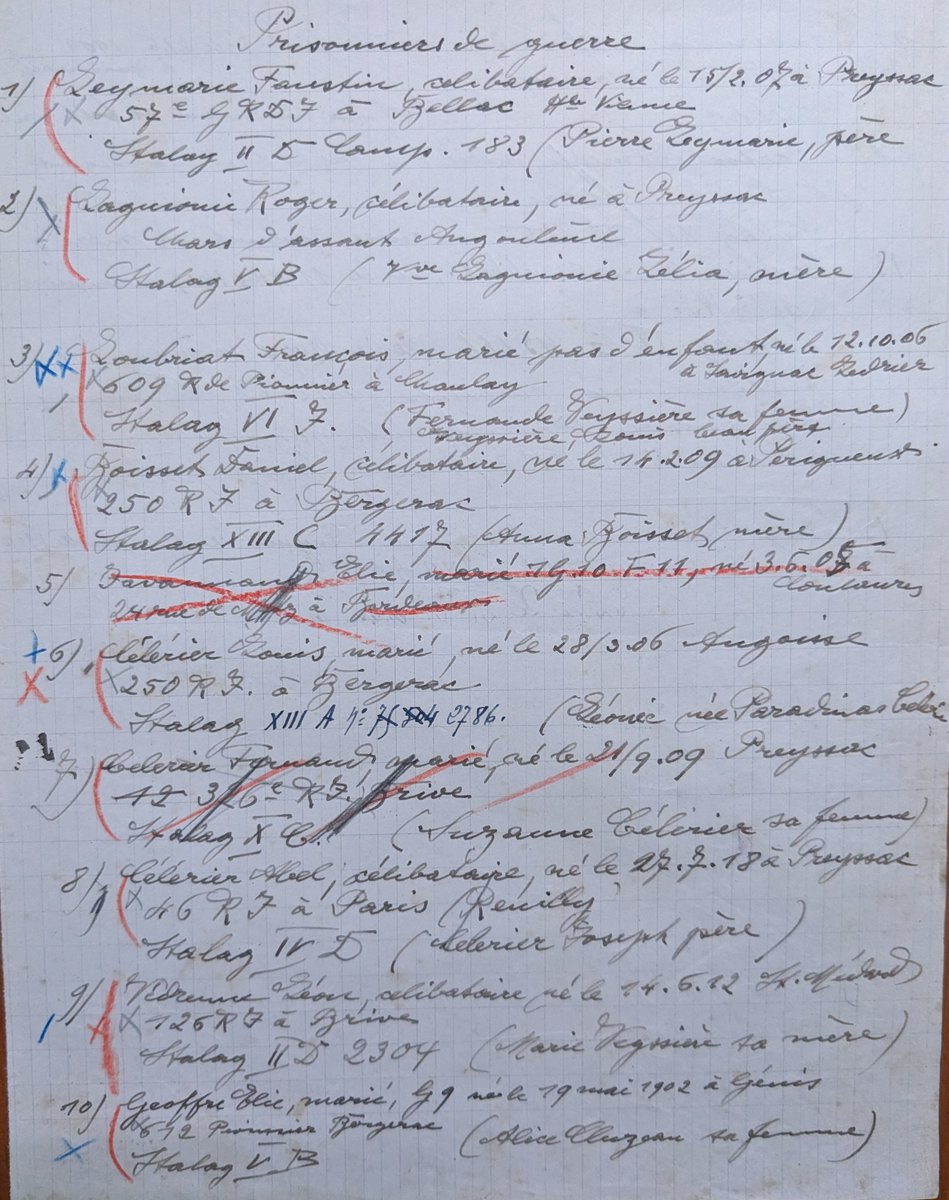 Prisonniers de guerre
1) Leymarie Faustin, célibataire, né le 15/2.07 à Preyssac
57e GRDI à Bellac Hte Vienne
Stalag II D Comp. 183 (Pierre Leymarie, père
2) Lagnionie Roger, célibataire, né à Preyssac
Chars d'assaut Angoulême
Stalag V B (Vve Lagnionie Zélia, mère)
3) Loubriat François, marié pas d'enfant né le 12.10.06
à Savignac Ledrier
609 R de Pionnier à
Stalag VI J. (Fernande Veyssière sa femme)
Veyssière Louis beau père
4) Boisset Daniel, célibataire, né le 14.2.09 à Périgueux
250 R I à Bergerac
Stalag XIII C 4417 (Anna Boisset mère)
5) Elie, marié 1G 10 F 11, né 3.6.05 à
24 rue de à Bordeaux
6) Célérier Louis, marié, né le 28/3.06 Angoisse
250 R I. à Bergerac
Stalag XIII A n° 2786. (Léonie née Paradinas
7) Célérier Fernand, marié, né le 21/9.09 Preyssac
326e R I. Brive
Stalag X C. (Suzanne Célérier sa femme)
8) Célérier Abel, célibataire, né le 27.7.18 à Preyssac
46 R I à Paris (Reuilly)
Stalag IV D (Célérier Joseph père)
9) Vedrenne Léon, célibataire né le 14.6.12 St. Médard
126 R I à Brive
Stalag II D 2304 (Marie Veyssière sa mère)
10) Geoffre Elie, marié, G9 né le 19 mai 1902 à Génis
612 Pionnier Bergerac (Alice Cluzeau sa femme)
Stalag V B